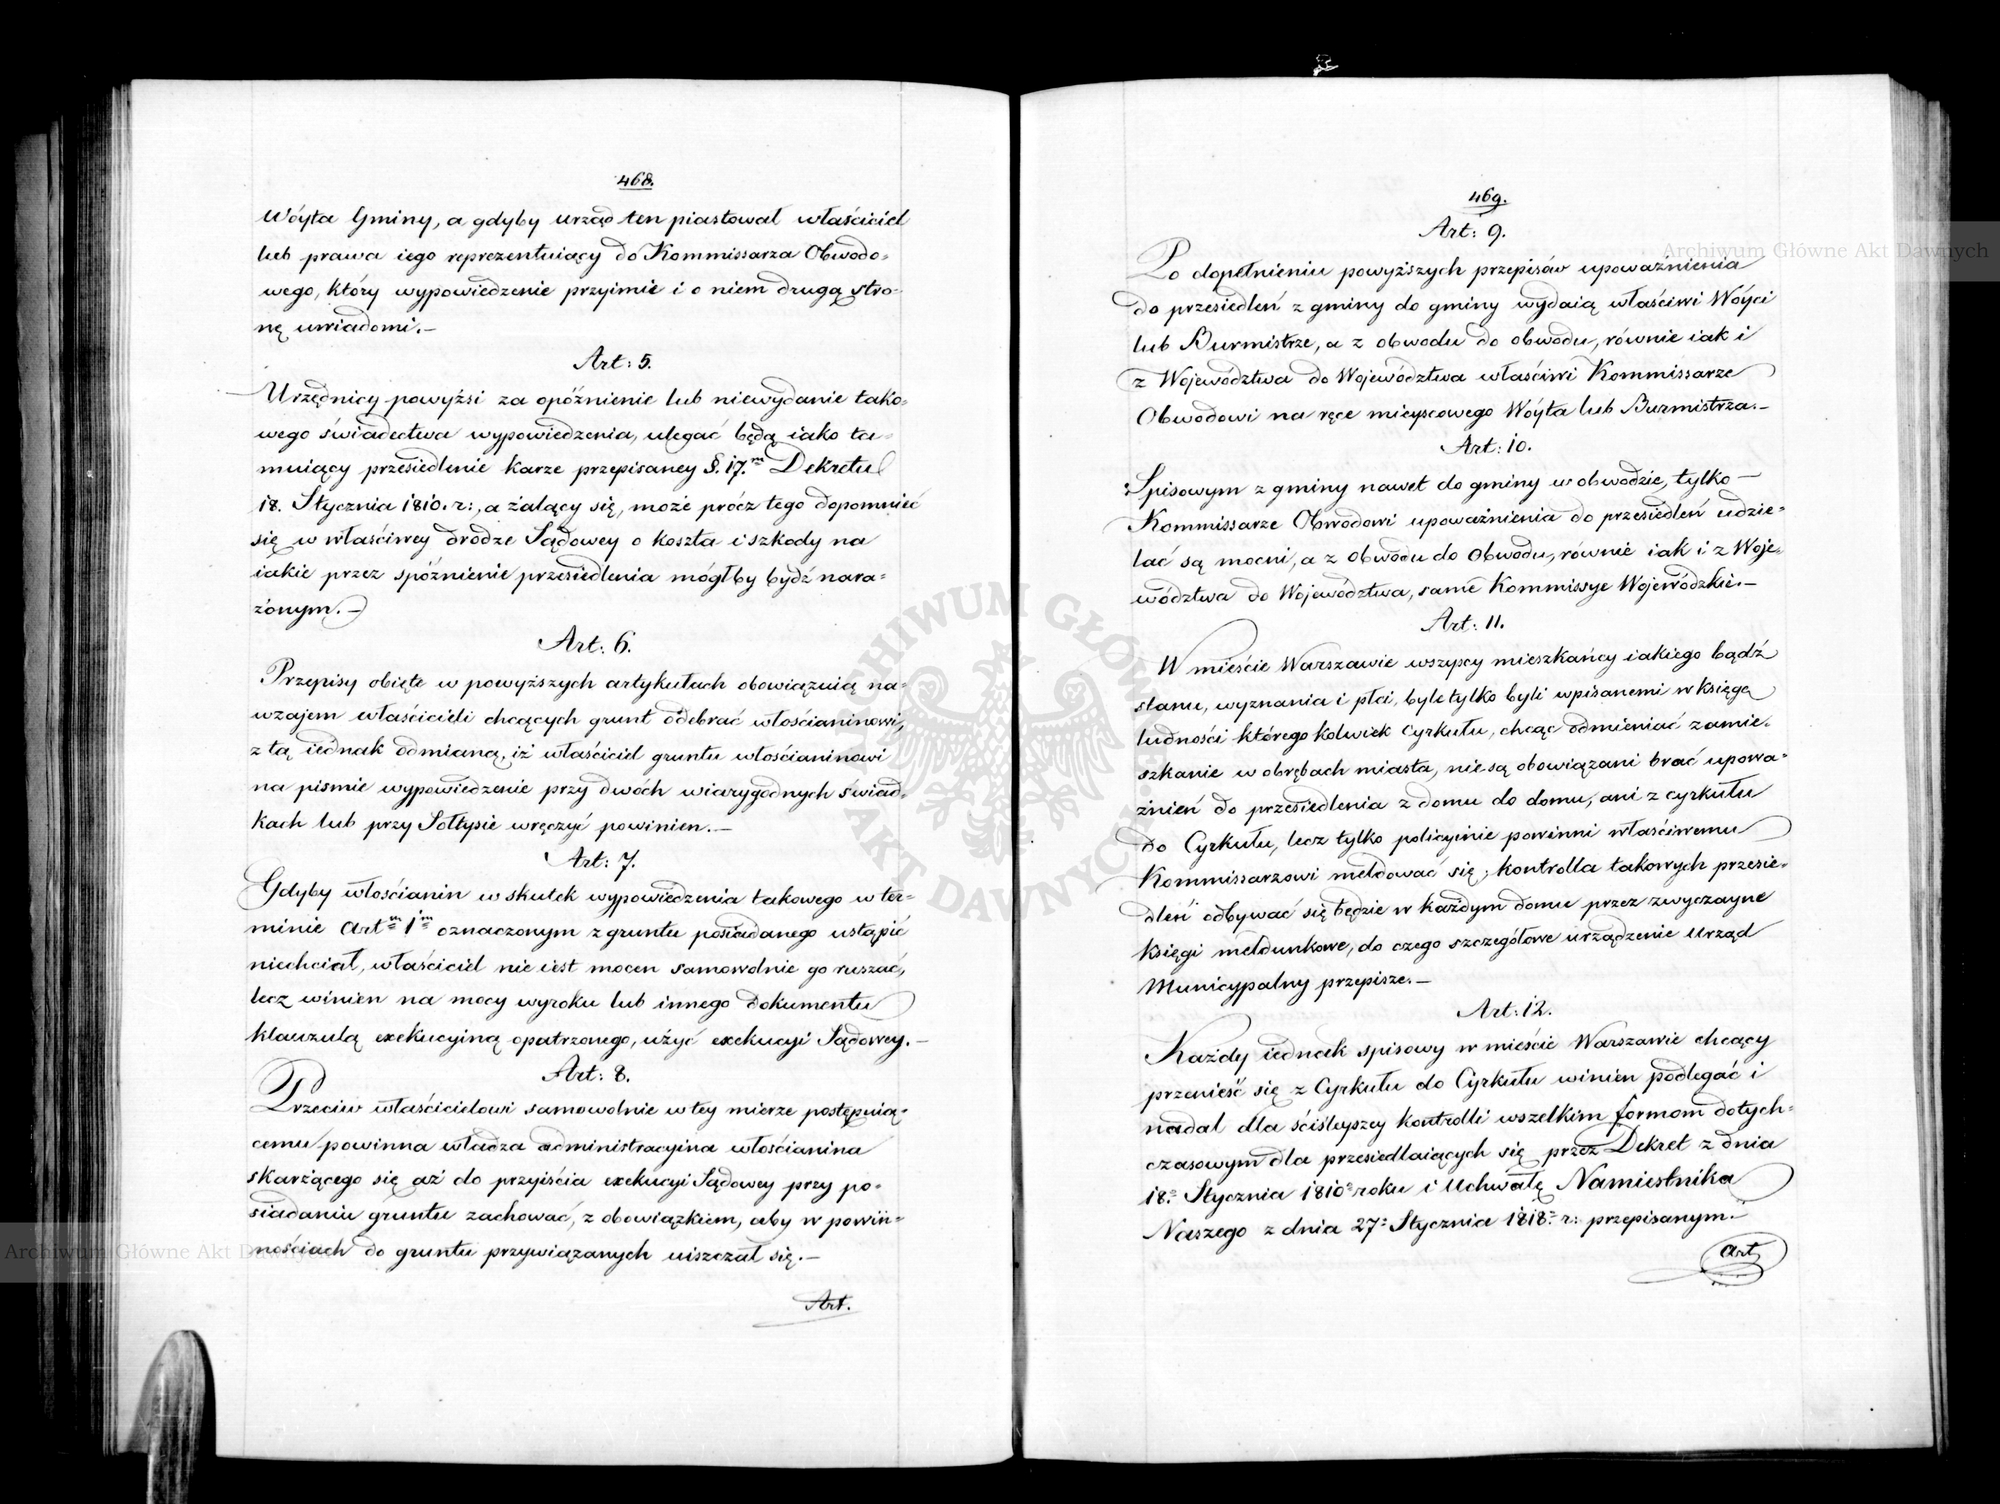 468.
Wóyta Gminy, a gdyby urząd ten piastował właściciel
lub prawa iego reprezentuiący do Kommissarza Obwodo-
wego, który wypowiedzenie przyimie i o niem drugą stro-
nę uwiadomi.—
Art: 5.
Urzędnicy powyżsi za opóźnienie lub niewydanie tako-
wego świadectwa wypowiedzenia, ulegać będą iako ta-
muiący przesiedlenie karze przepisaney §. 17.m Dekretu
18. Stycznia 1810. r:, a żalący się, może prócz tego dopomnieć
się w właściwey drodze Sądowey o koszta i szkody na
iakie przez spóźnienie przesiedlenia mógłby bydź nara-
żonym.—
Art: 6.
Przepisy obięte w powyższych artykułach obowiązuią na-
wzajem właścicieli chcących grunt odebrać włościaninowi,
z tą iednak odmianą, iż właściciel gruntu włościaninowi
na pismie wypowiedzenie przy dwóch wiarygodnych świad-
kach lub przy Sołtysie wręczyć powinien.—
Art: 7.
Gdyby włościanin w skutek wypowiedzenia takowego w ter-
minie Artm 1m oznaczonym z gruntu posiadanego ustąpić
niechciał, właściciel nie iest mocen samowolnie go ruszać,
lecz winien na mocy wyroku lub innego dokumentu
klauzulą exekucyiną opatrzonego, użyć exekucyi Sądowey.—
Art: 8.
Przeciw właścicielowi samowolnie w tey mierze postępuią-
cemu powinna władza administracyina włościanina
skarżącego się aż do przyiścia exekucyi Sądowey przy po-
siadaniu gruntu zachować, z obowiązkiem, aby w powin-
nościach do gruntu przywiązanych uiszczał się.—
Art.
469.
Art: 9.
Po dopełnieniu powyższych przepisów upoważnienia
do przesiedleń z gminy do gminy wydaią właściwi Wóyci
lub Burmistrze, a z obwodu do obwodu, równie iak i
z Województwa do Województwa właściwi Kommissarze
Obwodowi na ręce mieyscowego Wóyta lub Burmistrza.—
Art: 10.
Spisowym z gminy nawet do gminy w obwodzie, tylko —
Kommissarze Obwodowi upoważnienia do przesiedleń udzie-
lać są mocni, a z obwodu do Obwodu, równie iak i z Woje-
wództwa do Województwa, same Kommissye Wojewódzkie.—
Art: 11.
W mieście Warszawie wszyscy mieszkańcy iakiego bądź
stanu, wyznania i płci, byle tylko byli wpisanemi w księgę
ludności którego kolwiek Cyrkułu, chcąc odmieniać zamie-
szkanie w obrębach miasta, nie są obowiązani brać upowa-
żnień do przesiedlenia z domu do domu, ani z cyrkułu
do Cyrkułu, lecz tylko policyinie powinni właściwemu
Kommissarzowi meldować się; kontrolla takowych przesie-
dleń odbywać się będzie w każdym domu przez zwyczayne
księgi meldunkowe, do czego szczegółowe urządzenie Urząd
Municypalny przepisze.—
Art: 12.
Każdy iednak spisowy w mieście Warszawie chcący
przenieść się z Cyrkułu do Cyrkułu winien podlegać i
nadal dla ściśleyszey kontrolli wszelkim formom dotych-
czasowym dla przesiedlaiących się przez Dekret z dnia
18. Stycznia 1810 roku i Uchwałę Namiestnika
Naszego z dnia 27 Stycznia 1818. r: przepisanym.—
Art
Archiwum Główne Akt Dawnych
Archiwum Główne Akt Dawnych
ARCHIWUM GŁÓWNE AKT DAWNYCH